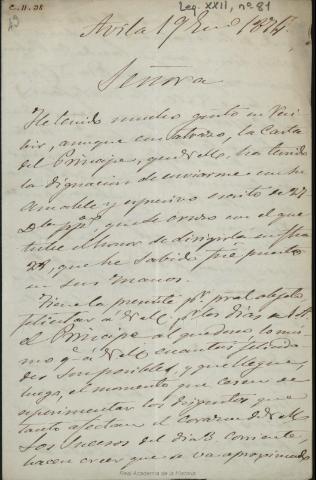 C-11-08
Leg. XXII, nº 81
Avila 19 En.º 1874
Señora
He tenido mucho gusto en reci
bir, aunque con atraso, la carta
del Principe, que V. M., ha tenido
la dignacion de enviarme con su
amable y espresivo escrito de 24
que se cruzó con el que
tube el honor de dirigirla en
28, que he sabido fué puesto
en sus manos.
Tiene la presente por objeto
felicitar á V. M. por los dias de
el Principe al que deseo lo mis
mo que á V. M. cuantas felicida
des son posibles, y que llegue,
luego, el momento que cesen de
esperimentar los disgustos que
tanto afectan el corazon de V. M.
Los sucesos del dia 3. corriente,
hacen creer que se va aproximando
Real Academia de la Historia